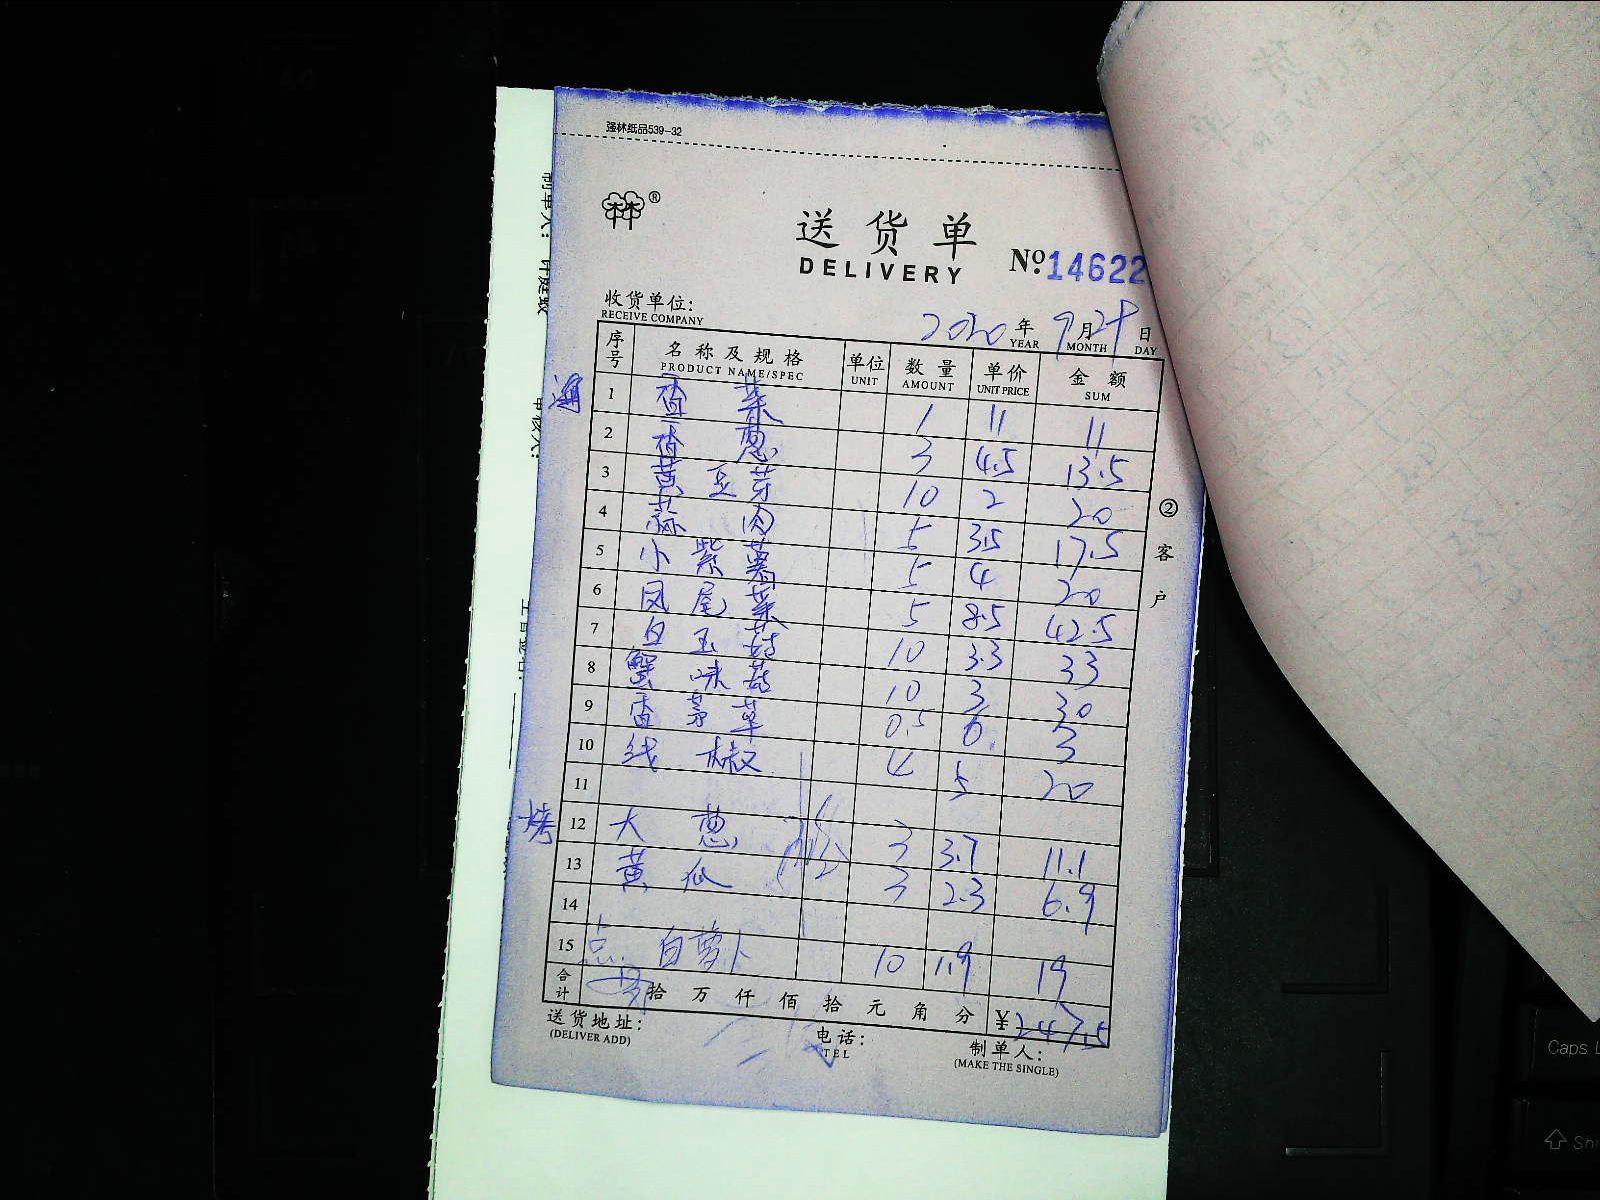 强林纸品539-32
®
送货单
DELIVERY
No.14622
收货单位:
RECEIVE COMPANY
2020年9月29日
YEAR MONTH DAY
序号 名称及规格 单位 数量 单价 金额
PRODUCT NAME/SPEC UNIT AMOUNT UNIT PRICE SUM
1 香菜 1 11 11
2 香葱 3 4.5 13.5
3 黄豆芽 10 2 20
4 蒜肉 5 3.5 17.5
5 小紫薯 5 4 20
6 凤尾菜 5 8.5 42.5
7 白玉菇 10 3.3 33
8 蟹味菇 10 3 30
9 香茅草 0.5 6 3
10 线椒 4 5 20
11
烤 12 大葱 3 3.7 11.1
13 黄瓜 3 2.3 6.9
14
15 点 白萝卜 10 1.9 19
合计 拾万仟佰拾元角分 ¥247.5
送货地址:
(DELIVER ADD)
电话:
TEL
制单人:
(MAKE THE SINGLE)
②客户
制单人:
审核人:
Caps L